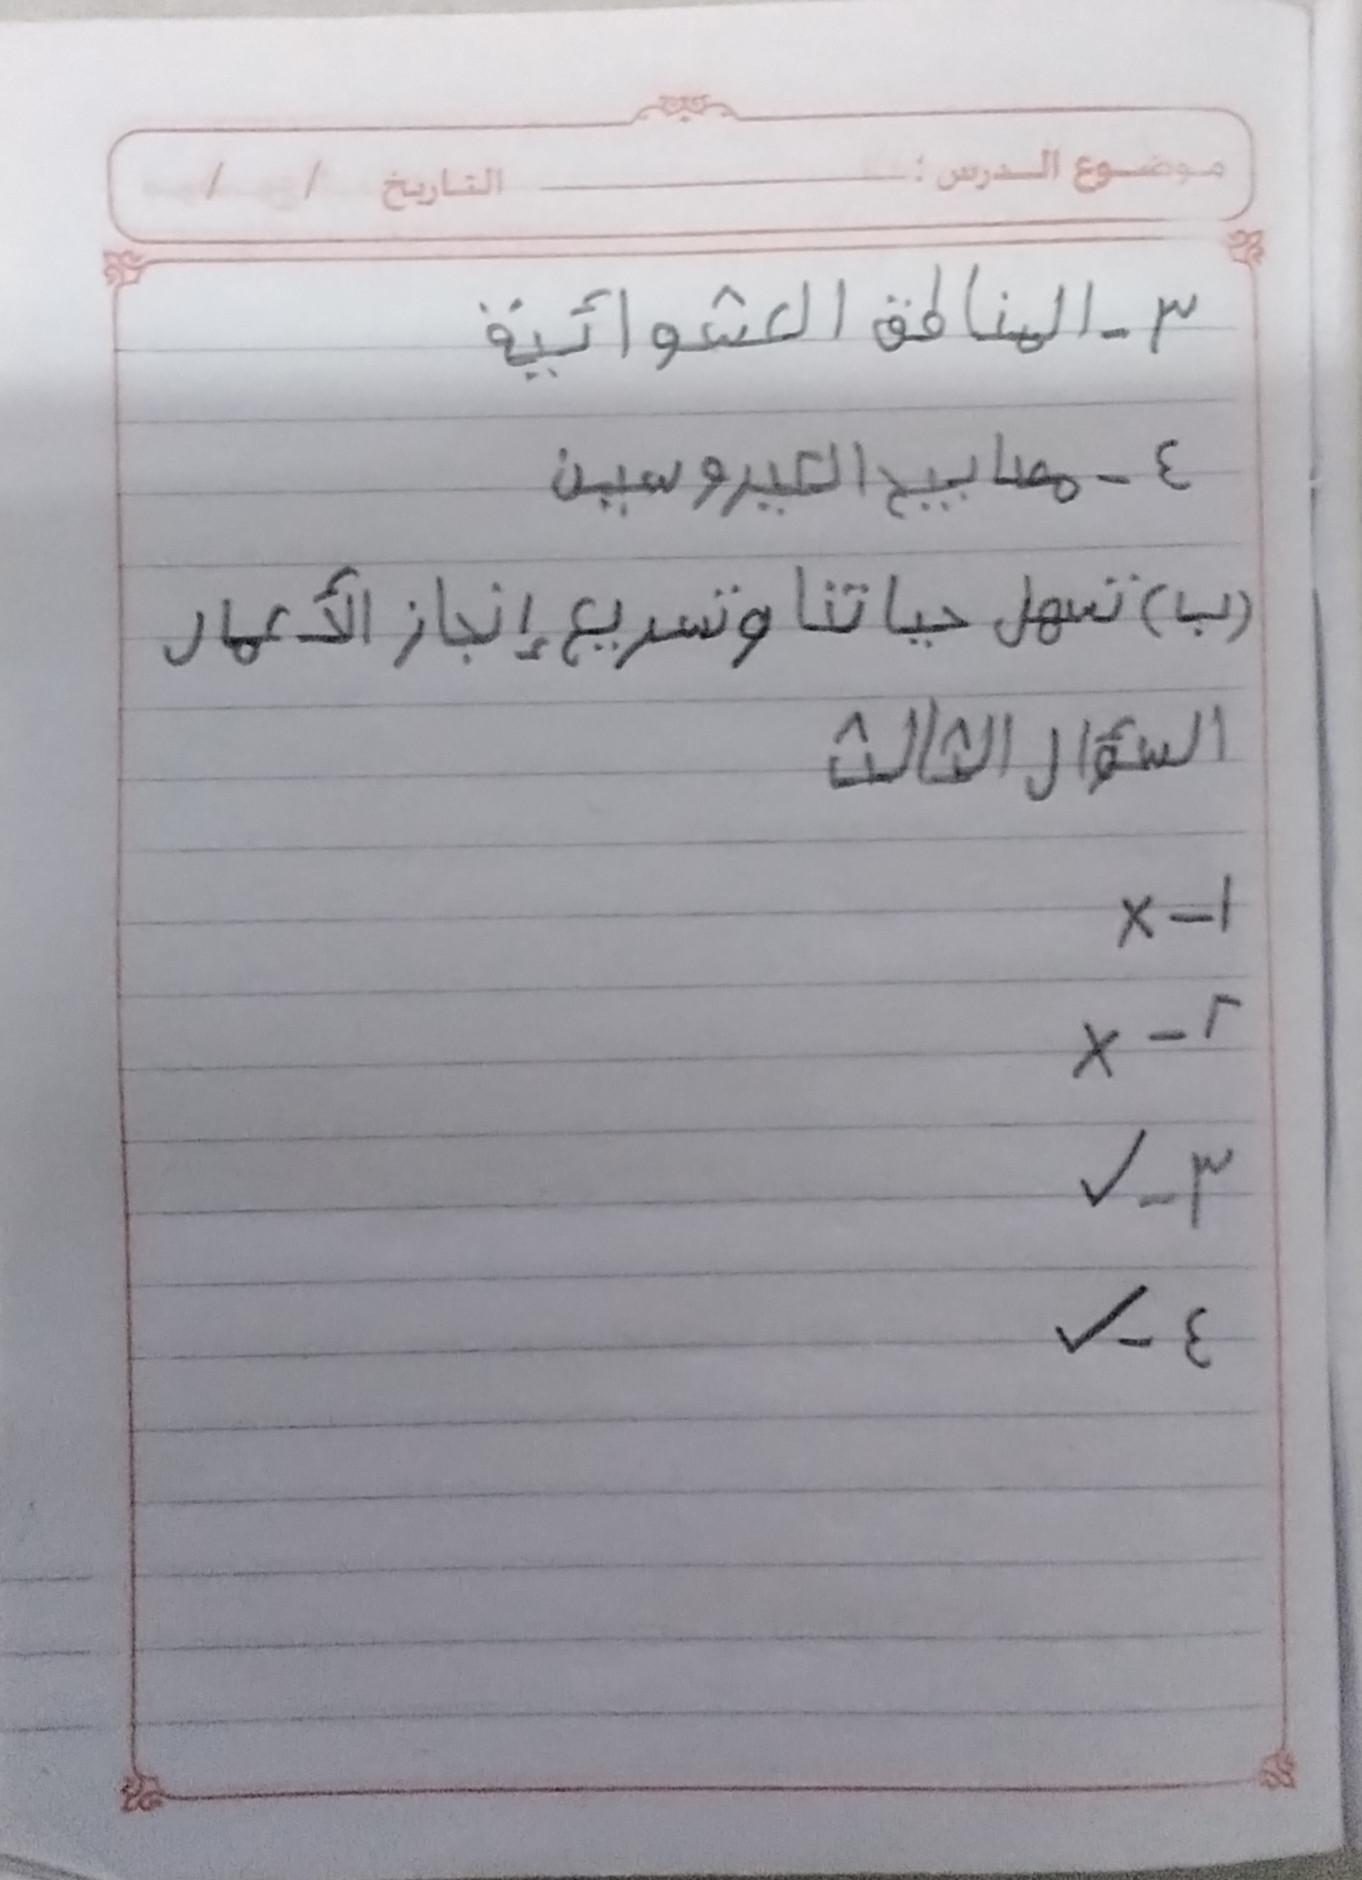 موضوع الدرس : التاريخ / /
٣ - المناطق العشوائية
٤ - مصابيح الكيروسين
(ب) تسهل حياتنا وتسريع إنجاز الأعمال
السؤال الثالث
١ - x
٢ - x
٣ - ✓
٤ - ✓